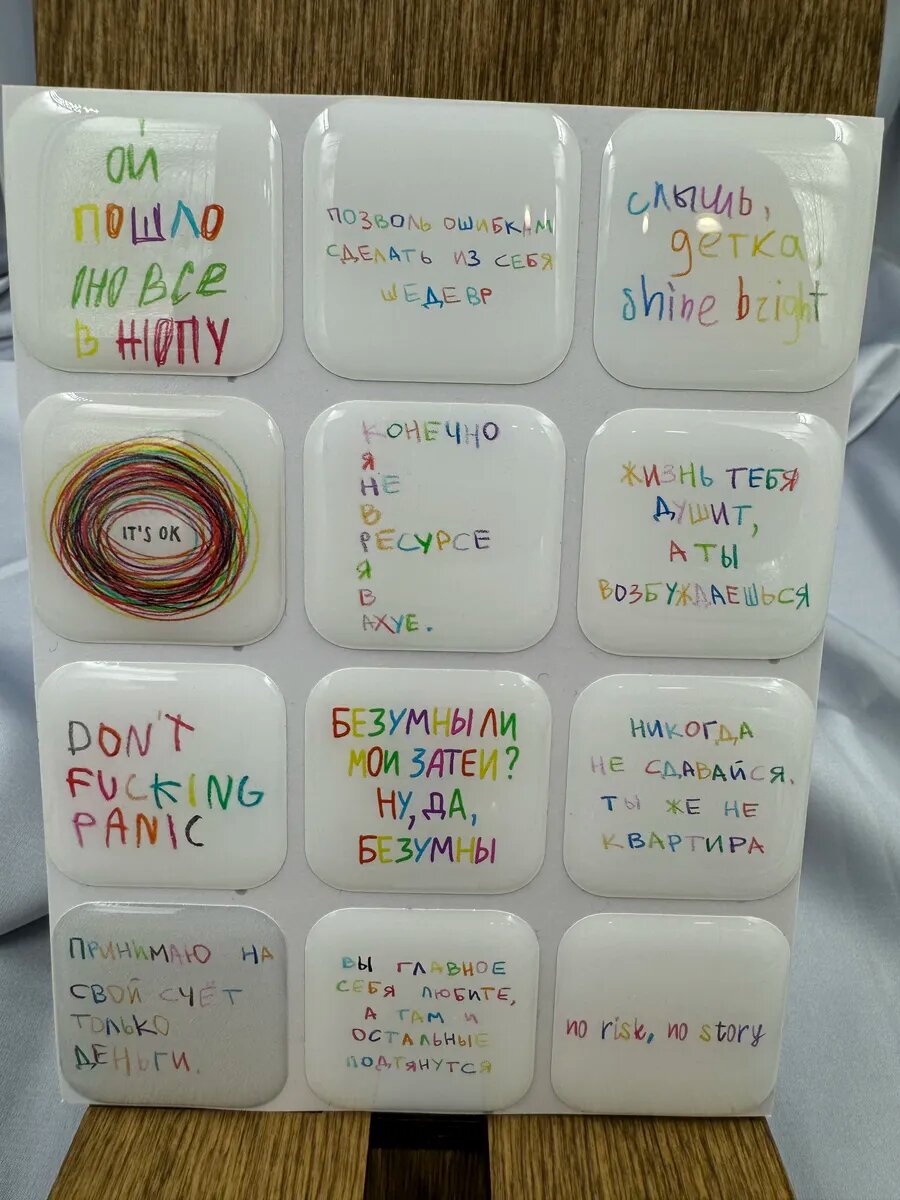 ОЙ
ПОШЛО
ОНО ВСЕ
В ЖОПУ
ПОЗВОЛЬ ОШИБКАМ
СДЕЛАТЬ ИЗ СЕБЯ
ШЕДЕВР
слышь,
детка
shine bright
IT'S OK
КОНЕЧНО
Я
НЕ
В
РЕСУРСЕ
Я
В
АХУЕ.
ЖИЗНЬ ТЕБЯ
ДУШИТ,
А ТЫ
ВОЗБУЖДАЕШЬСЯ
DON'T
FUCKING
PANIC
БЕЗУМНЫ ЛИ
МОИ ЗАТЕИ?
НУ, ДА,
БЕЗУМНЫ
НИКОГДА
НЕ СДАВАЙСЯ.
ТЫ ЖЕ НЕ
КВАРТИРА
ПРИНИМАЮ НА
СВОЙ СЧЁТ
ТОЛЬКО
ДЕНЬГИ.
ВЫ ГЛАВНОЕ
СЕБЯ ЛЮБИТЕ,
А ТАМ И
ОСТАЛЬНЫЕ
ПОДТЯНУТСЯ
no risk, no story